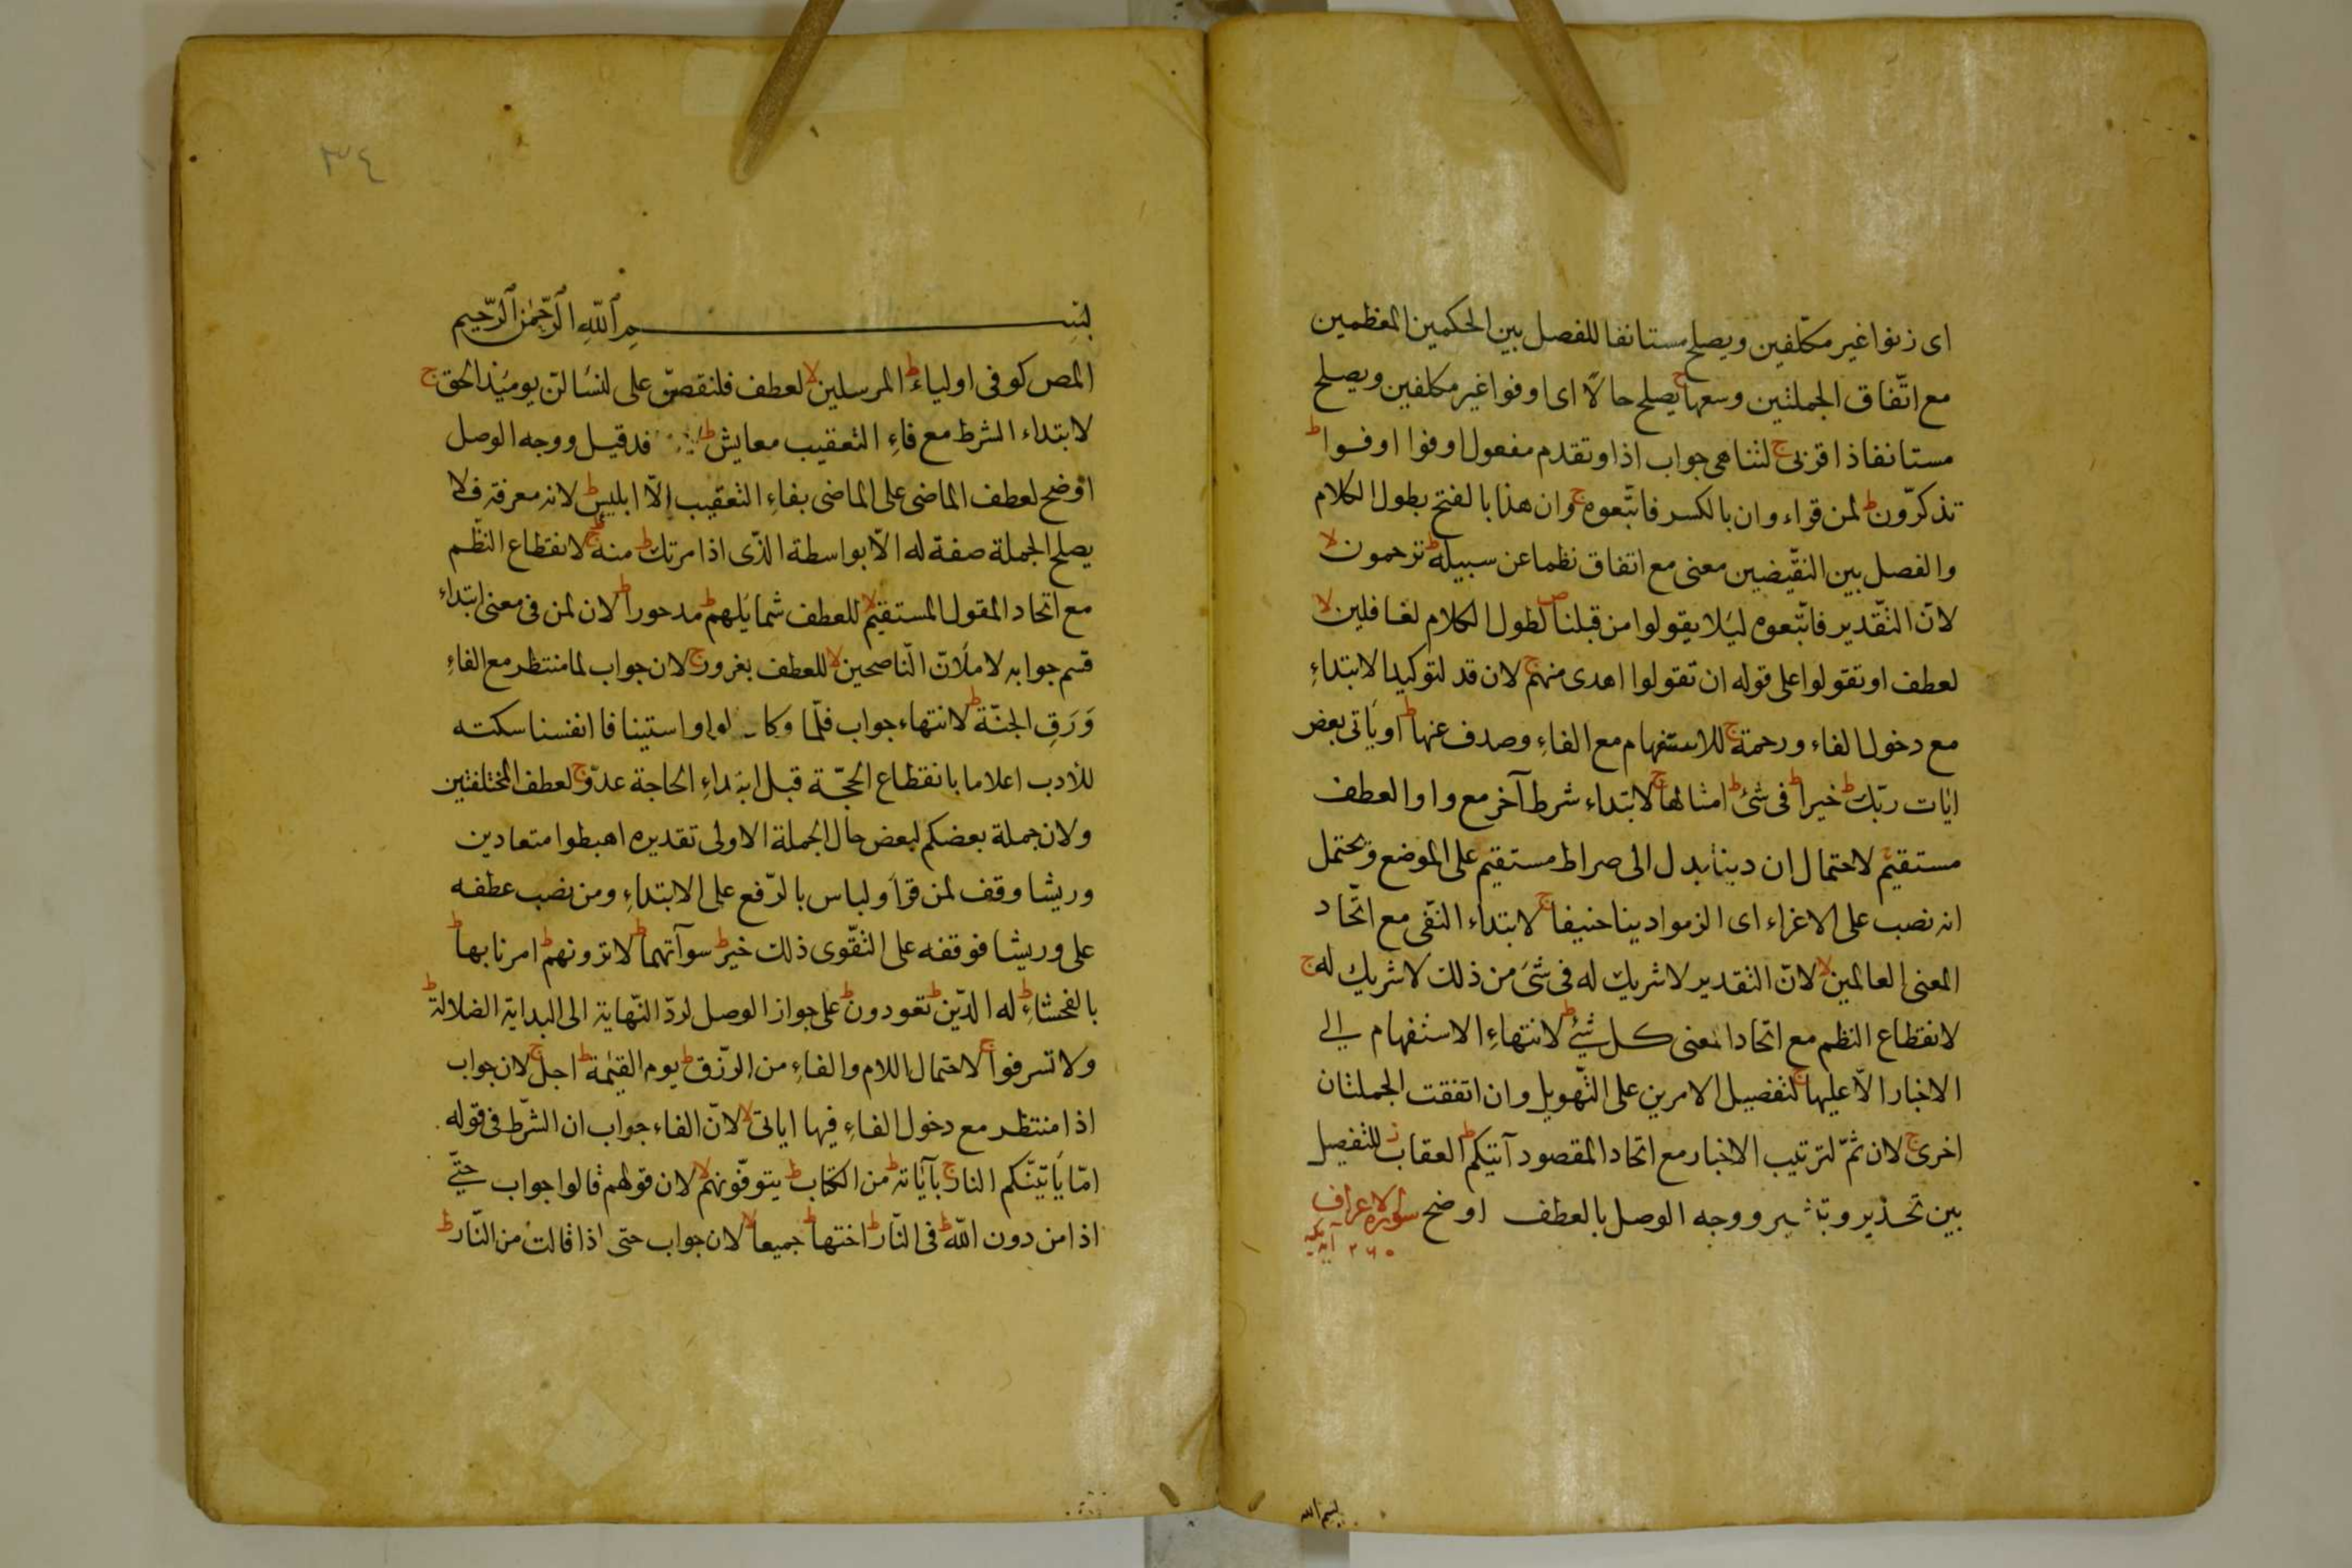 اى زنوا غير مكلّفين ويصلح مستانفا للفصل بين الحكمين المعظمين
مع اتّفاق الجملتين وسعها ج يصلح حالًا اى اوفوا غير مكلفين ويصلح
مستانفا ذا قربى ج لتناهى جواب اذا وتقدم مفعول اوفوا اوفوا ط
تذكرّون ط لمن قراء وان بالكسر فاتّبعوه ج وان هذا بالفتح بطول الكلام
والفصل بين النقّيضين معنى مع اتفاق نظما عن سبيله ط ترحمون لا
لانّ التّقدير فاتّبعوه ليلا يقولوا من قبلنا ص لطول الكلام لغافلين لا
لعطف او تقولوا على قوله ان تقولوا اهدى منهم ج لان قد لتوكيد الابتداءِ
مع دخول الفاء ورحمة ج للاستفهام مع الفاءِ وصدف عنها ط او يأتى بعض
ايات ربّك ط خيرا ط فى شئ ط امثالها ج لابتداء شرط آخر مع واو العطف
مستقيم ج لاحتمال ان دينا بدل الى صراط مستقيم على الموضع ويحتمل
انه نصب على الاغراء اى الزموا دينا حنيفا ج لابتداء النّفى مع اتّحاد
المعنى العالمين لا لانّ التقدير لا شريك له فى شئ من ذلك لا شريك له ج
لانقطاع النظم مع اتحاد المعنى كل شئ ط لانتهاءِ الاستفهام الى
الاخبار الّا عليها ج لتفصيل الامرين على التّهويل وان اتفقت الجملتان
اخرى ج لان ثمّ لترتيب الاخبار مع اتحاد المقصود آتيكم ط العقاب ز للتفصيل
بين تحذير وتبشير ووجه الوصل بالعطف اوضح سورة الاعراف
٢٦٠ آية مكية
بسم الله
٣٤
بسم الله الرّحمن الرّحيم
المص كوفى اولياء ط المرسلين لا لعطف فلنقصّن على لنسألنّ يومئذ الحق ج
لابتداء الشرط مع فاءِ التعقيب معايش ط قد قيل ووجه الوصل
اوضح لعطف الماضى على الماضى بفاءِ التعقيب الّا ابليس ط لانه معرفة فلا
يصلح الجملة صفة له الّا بواسطة الذّى اذ امرتك ط منه ج لانقطاع النّظم
مع اتحاد المقول المستقيم لا للعطف شمايلهم ط مدحورا ط لان لمن فى معنى ابتداء
قسم جوابه لاملأنّ النّاصحين لا للعطف بغرور ج لان جواب لما منتظر مع الفاءِ
وَرَقِ الجنّة ط لانتهاء جواب فلّما وكان الواو استينافا انفسنا سكته
للأدب اعلاما بانقطاع الحجّة قبل ابتداءِ الحاجة عدوّ ج لعطف المختلفتين
ولان جملة بعضكم لبعض حال الجملة الاولى تقديره اهبطوا متعادين
وريشا وقف لمن قرأ ولباس بالرّفع على الابتداءِ ومن نصب عطفه
على وريشا فوقفه على التّقوى ذلك خير ط سوآتهما ط لا ترونهم ط امرنا بها ط
بالفحشاءِ ط له الدّين ط تعودون ط على جواز الوصل لردّ النّهاية الى البداية الضلالة ط
ولا تسرفوا ج لاحتمال اللام والفاءِ من الرّزق ط يوم القيمة ط اجل ج لان جواب
اذا منتظر مع دخول الفاءِ فيها اياتى لا لانّ الفاء جواب ان الشّرط فى قوله
امّا يأتيّنّكم النار ج بآياته ط من الكتاب ط يتوفّونهم لا لان قولهم قالوا جواب حتّى
اذا من دون اللّه ط فى النّار ط اختها ط جميعا لا لان جواب حتى اذا قالت من النّار ط